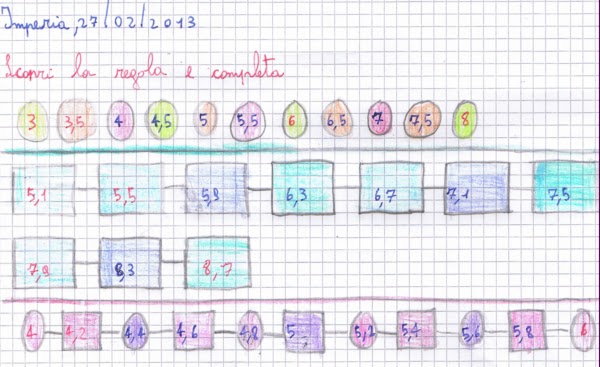 Imperia, 27/02/2013
Scopri la regola e completa
3 3,5 4 4,5 5 5,5 6 6,5 7 7,5 8
5,1 5,5 5,9 6,3 6,7 7,1 7,5
7,9 8,3 8,7
4 4,2 4,4 4,6 4,8 5 5,2 5,4 5,6 5,8 6